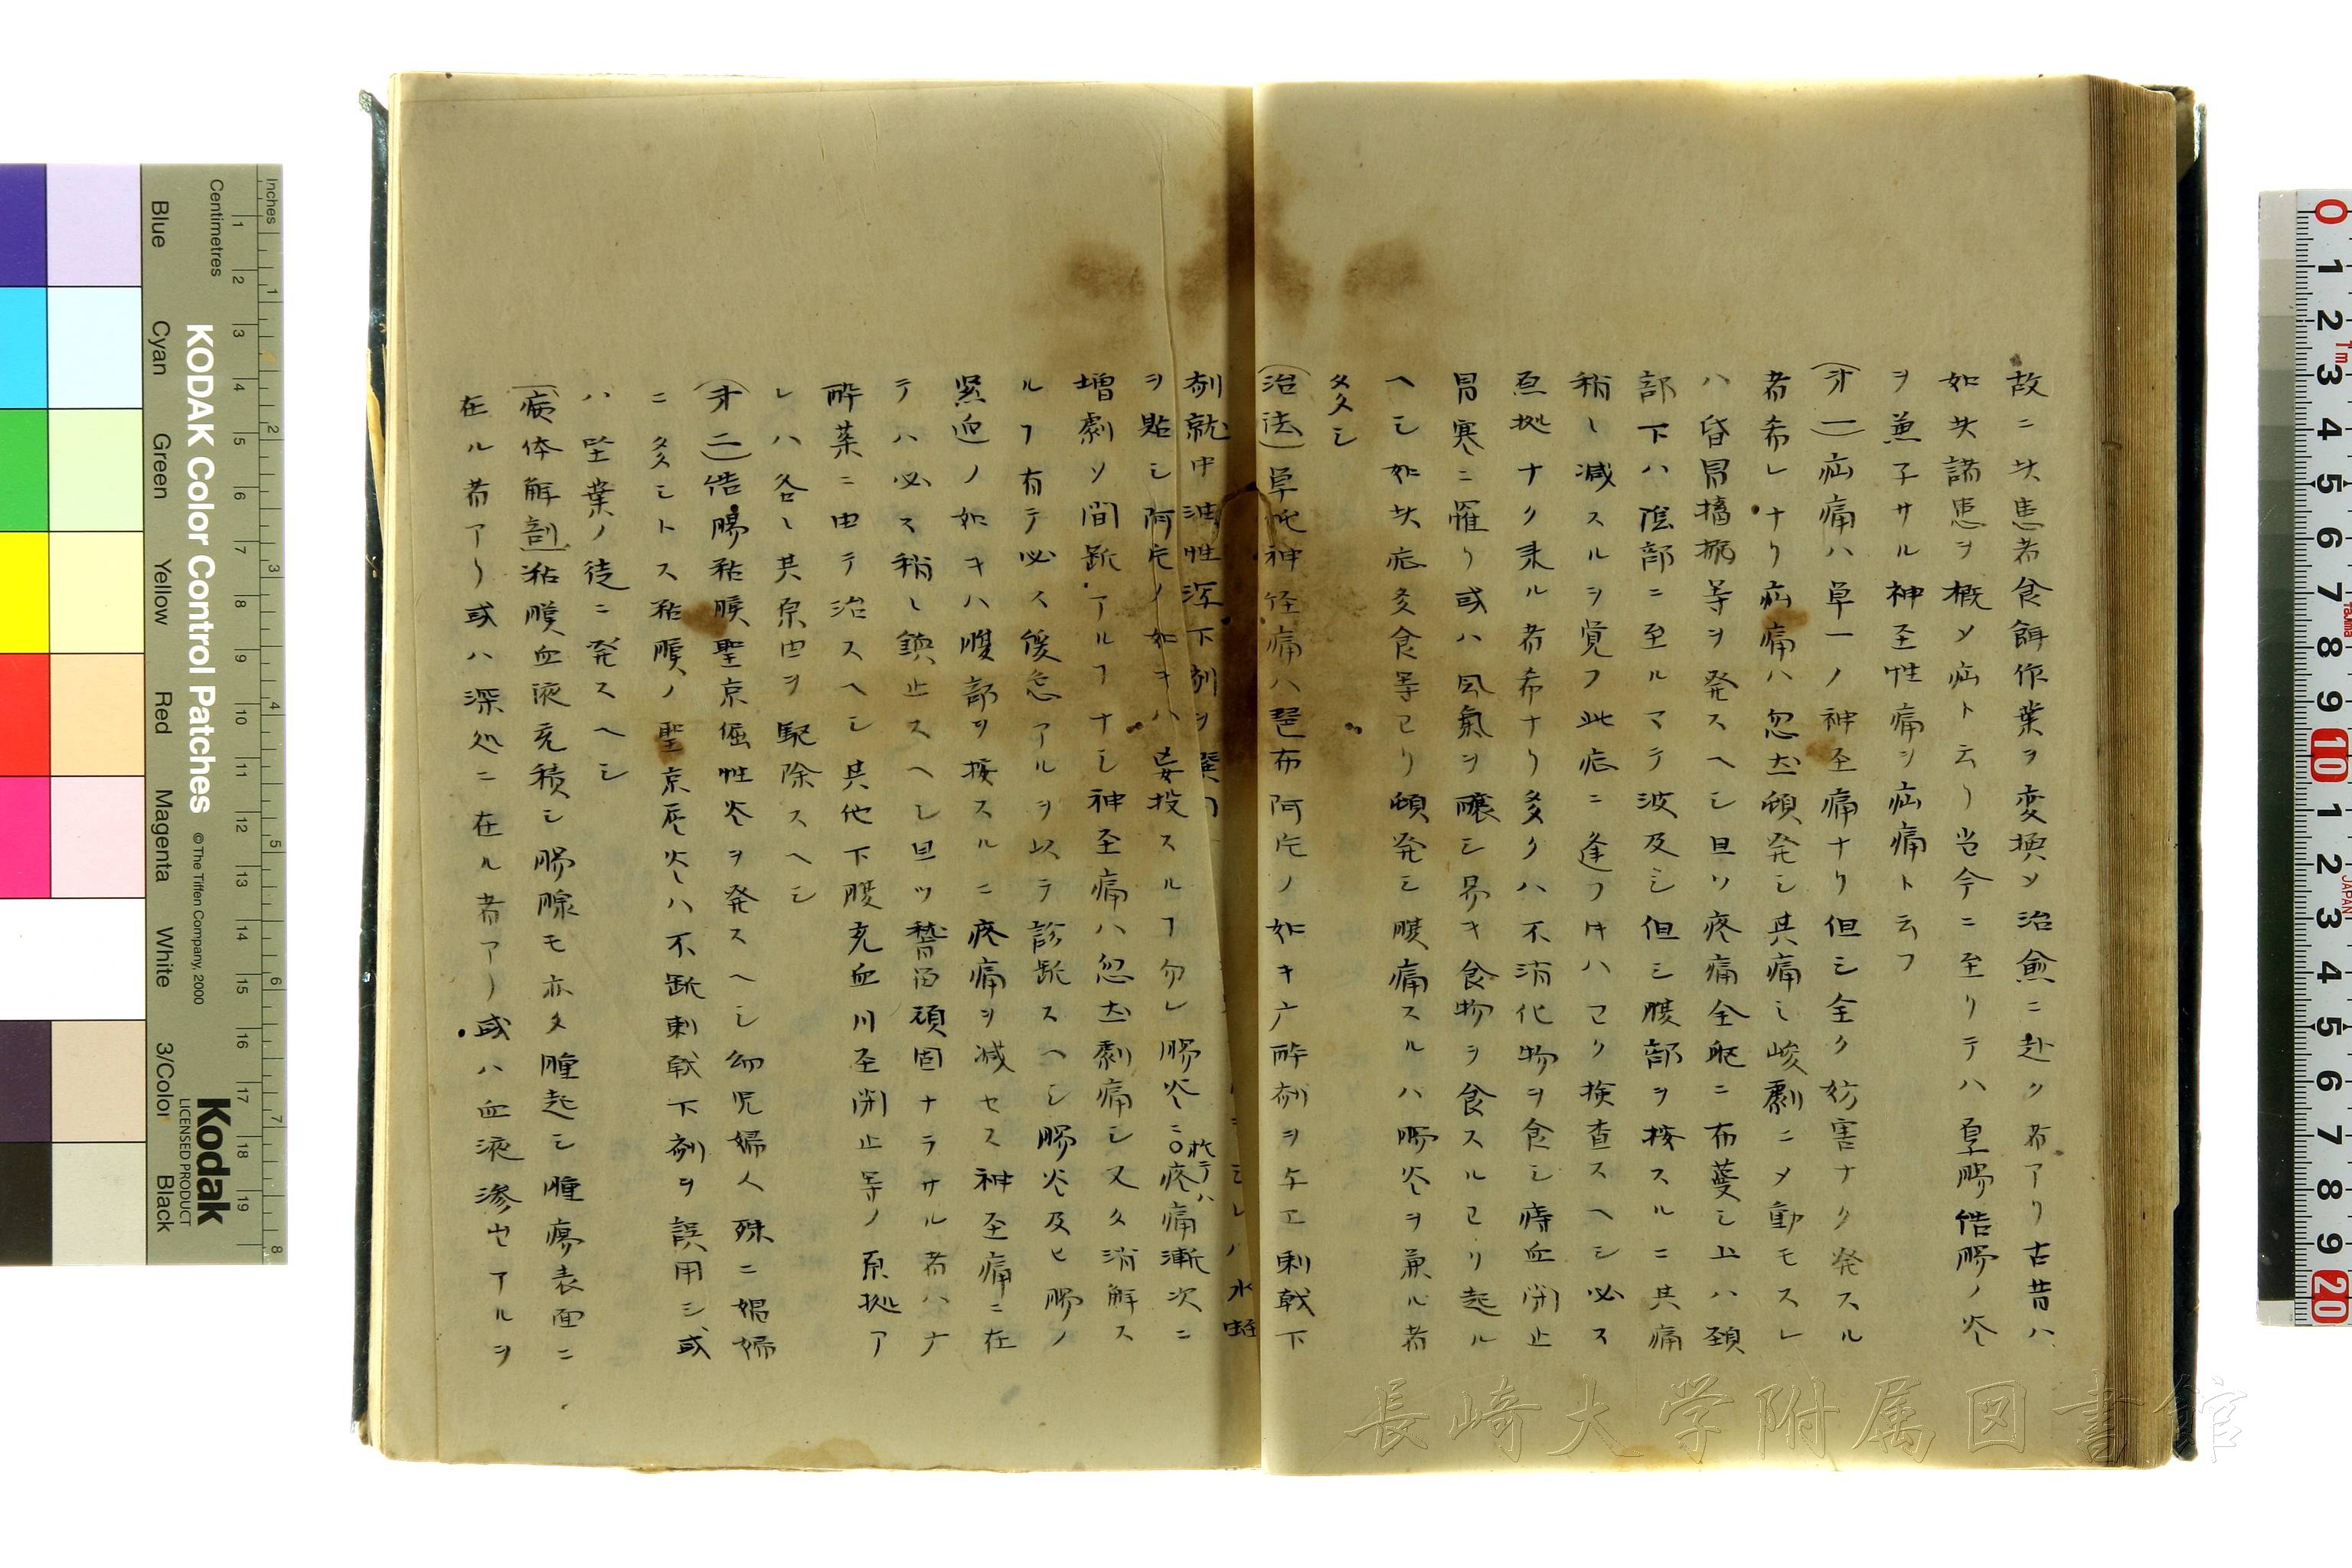 故ニ其患者食餌作業ヲ変換〆治愈ニ赴ク者アリ古昔ハ
如其諸患ヲ概〆疝ト云り当今ニ至リテハ直腸結腸ノ炎
ヲ兼子サル神圣性痛ヲ疝痛ト云フ
(才一)疝痛ハ単一ノ神圣痛ナリ但シ全ク妨害ナク発スル
者希レナリ疝痛ハ忽如頓発シ其痛ミ峻劇ニ〆動モスレ
ハ昏冒搐搦等ヲ発スヘシ且ツ疼痛全躯ニ布蔓シ上ハ頚
部下ハ陰部ニ至ルマテ波及シ但シ腹部ヲ按スルニ其痛
稍ミ減スルヲ覚フ此症ニ逢フ片ハヨク検査スヘシ必ス
原拠ナク来ル者希ナリ多クハ不消化物ヲ食シ痔血閉止
冒寒ニ罹り或ハ風氣ヲ醸シ易キ食物ヲ食スルヨリ起ル
ヘシ如其症多食等ヨり頓発シ腹痛スルハ腸炎ヲ兼ル者
多シ
(治法)単純神圣痛ハ琶布阿片ノ如キ广酔剤ヲ与エ刺戟下
水蛭
剤就中油性瀉下剤ヲ
ヲ貼シ阿片ノ如キハ妄投スルヿ勿レ腸炎ニ○於テハ疼痛漸次ニ
増劇ソ間断アルヿナシ神圣痛ハ忽如劇痛シ又タ消解ス
ルヿ有テ必ス緩急アルヲ以テ診断スヘシ腸炎及ヒ腸ノ
緊迫ノ如キハ腹部ヲ按スルニ疼痛ヲ減セス神圣痛ニ在
テハ必ス稍ミ鎮止スヘシ且ツ稽留頑固ナラサル者ハナ
酔薬ニ由テ治スヘシ其他下腹充血川圣閉止等ノ原拠ア
レハ各ミ其原由ヲ駆除スヘシ
(才二)結腸粘膜聖京倔性炎ヲ発スヘシ幼児婦人殊ニ娼婦
ニ多シトス粘膜ノ聖京尼炎ハ不断刺戟下剤ヲ誤用シ或
ハ坐業ノ徒ニ発スヘシ
(病体解剖)粘膜血液充積シ腸腺モ亦タ腫起シ腫瘍表面ニ
在ル者アり或ハ深処ニ在ル者アり或ハ血液滲出アルヲ
Inches
Centimetres
KODAK Color Control Patches
© The Tiffen Company, 2000
Kodak
LICENSED PRODUCT
Blue
Cyan
Green
Yellow
Red
Magenta
White
3/Color
Black
長崎大学附属図書館